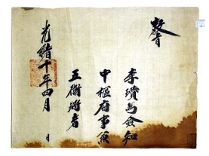 敎旨
李瓚爲僉知
中樞府事兼
五衛將者
光緖十年四月 日